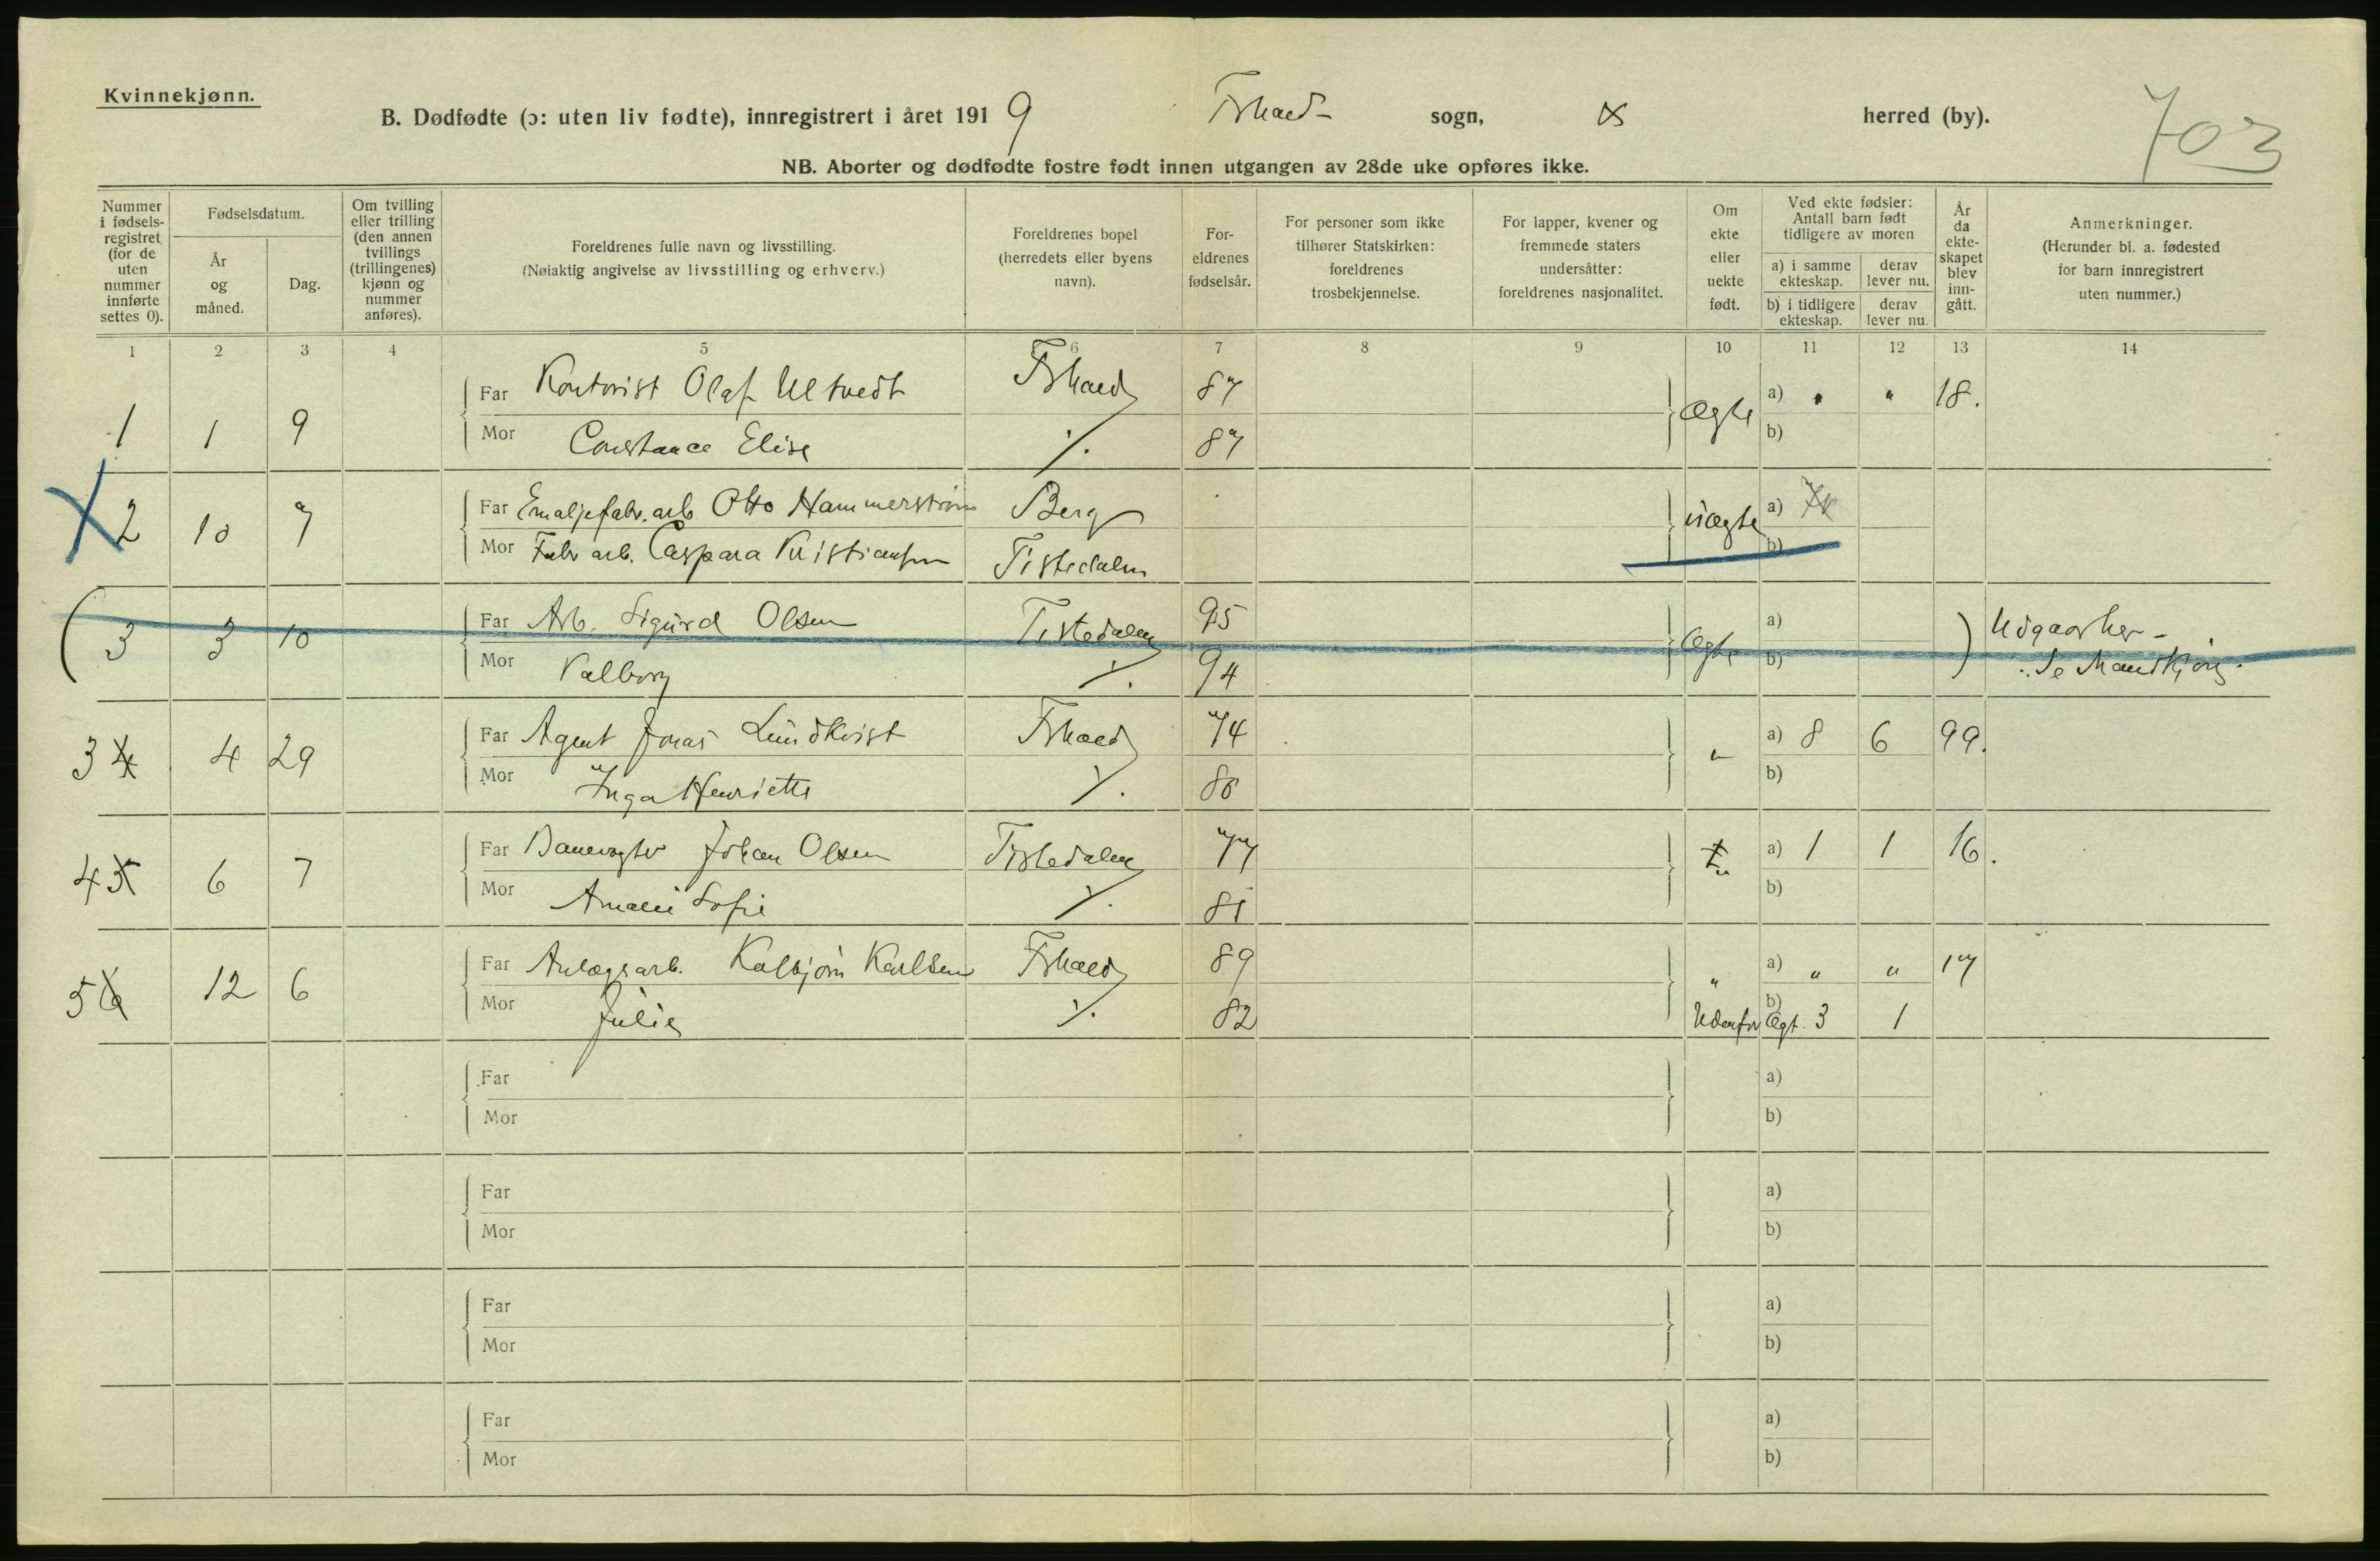 Kvinnekjønn.
B. Dødfødte (ɔ: uten liv fødte), innregistrert i året 1919 Frhald- sogn, & herred (by). 703
NB. Aborter og dødfødte fostre født innen utgangen av 28de uke opføres ikke.
Nummer i fødsels-registret (for de uten nummer innførte settes 0).
Fødselsdatum.
År og måned.
Dag.
Om tvilling eller trilling (den annen tvillings (trillingenes) kjønn og nummer anføres).
Foreldrenes fulle navn og livsstilling.
(Nøiaktig angivelse av livsstilling og erhverv.)
Foreldrenes bopel (herredets eller byens navn).
For-eldrenes fødselsår.
For personer som ikke tilhører Statskirken: foreldrenes trosbekjennelse.
For lapper, kvener og fremmede staters undersåtter: foreldrenes nasjonalitet.
Om ekte eller uekte født.
Ved ekte fødsler: Antall barn født tidligere av moren
a) i samme ekteskap. derav lever nu.
b) i tidligere ekteskap. derav lever nu.
År da ekte-skapet blev inn-gått.
Anmerkninger.
(Herunder bl. a. fødested for barn innregistrert uten nummer.)
1 2 3 4 5 6 7 8 9 10 11 12 13 14
1 1 9 Far Kontorist Olaf Ultvedt Frhald 87 Ægte a) " " 18.
Mor Constance Elise ٪ 87 b)
2 10 7 Far Emaljefabr. arb Otto Hammerstrøm Berg uægte a)
Mor Fabr arb. Caspara Kristiansen Tistedalen b)
(3 3 10 Far Arb. Sigurd Olsen Tistedalen 95 Ægte a) ) Udgaar her -
Mor Valborg ٪ 94 b) Se Mandkjøn.
3 4 4 29 Far Agent Jonas Lundkvist Frhald 74 " a) 8 6 99.
Mor Inga Henriette ٪ b)
4 5 6 7 Far Banevogter Johan Olsen Tistedalen 77 " a) 1 1 16.
Mor Amalie Sofie ٪ 81 b)
5 6 12 6 Far Anlægsarb. Kolbjørn Karlsen Frhald 89 " a) " " 17
Mor Julie ٪ 82 Udenfor b) Ægt. 3 1
Far a)
Mor b)
Far a)
Mor b)
Far a)
Mor b)
Far a)
Mor b)